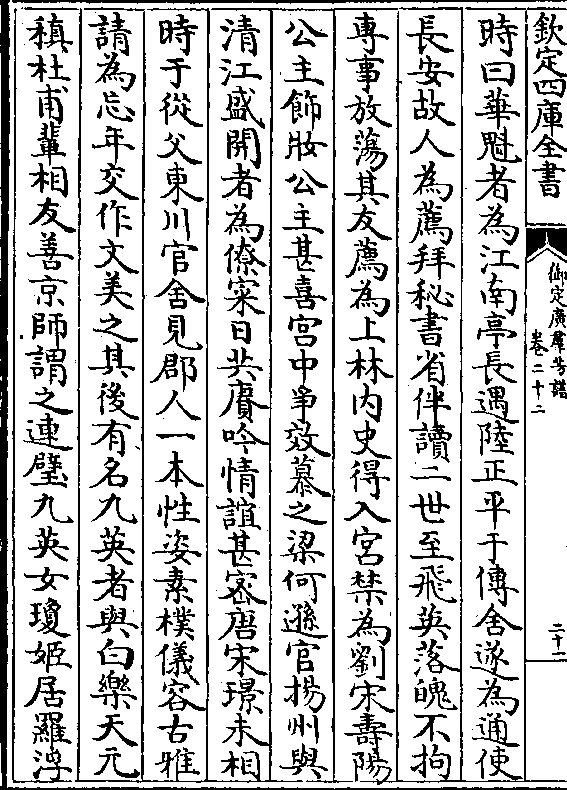 欽定四庫全書
御定廣羣芳譜
卷二十二
二十一
時曰華魁者為江南亭長遇陸正平于傳舍遂為通使
長安故人為薦拜秘書省伴讀二世至飛英落魄不拘
専事放蕩其友薦為上林内史得入宮禁為劉宋壽陽
公主飾妝公主甚喜宮中争效慕之梁何遜官揚州與
清江盛開者為僚寀日共賡吟情誼甚宻唐宋璟未相
時于從父東川官舍見郡人一本性姿素樸儀容古雅
請為忘年交作文美之其後有名九英者與白樂天元
稹杜甫輩相友善京師謂之連璧九英女瓊姬居羅浮